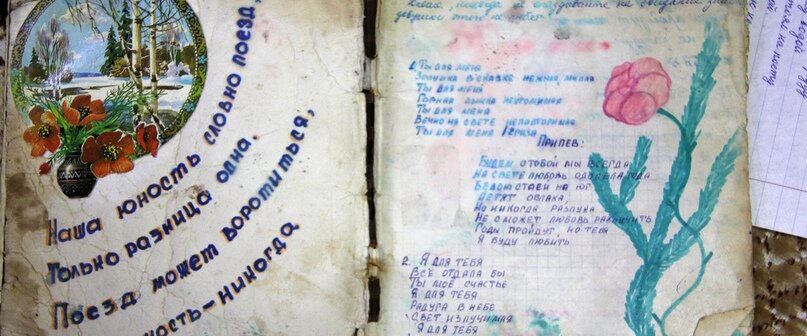 Наша юность словно поезд,
Только разница одна.
Поезд может воротиться,
ность – никогда
1. Ты для меня
Золушка в сказке нежная, милая
Ты для меня
Горная дымка неуловимая
Ты для меня
Вечно на свете неповторимая
Ты для меня 2 раза
Припев:
Будем с тобой мы всегда
На свете любовь одолела года
Белою стаей на юг
Летят облака,
Но никогда разлука
Не сможет любовь разлучить
Годы пройдут, но тебя
Я буду любить
2. Я для тебя
Всё отдала бы
Ты моё счастье
Я для тебя
Радуга в небе
Свет излучимая
Я для тебя